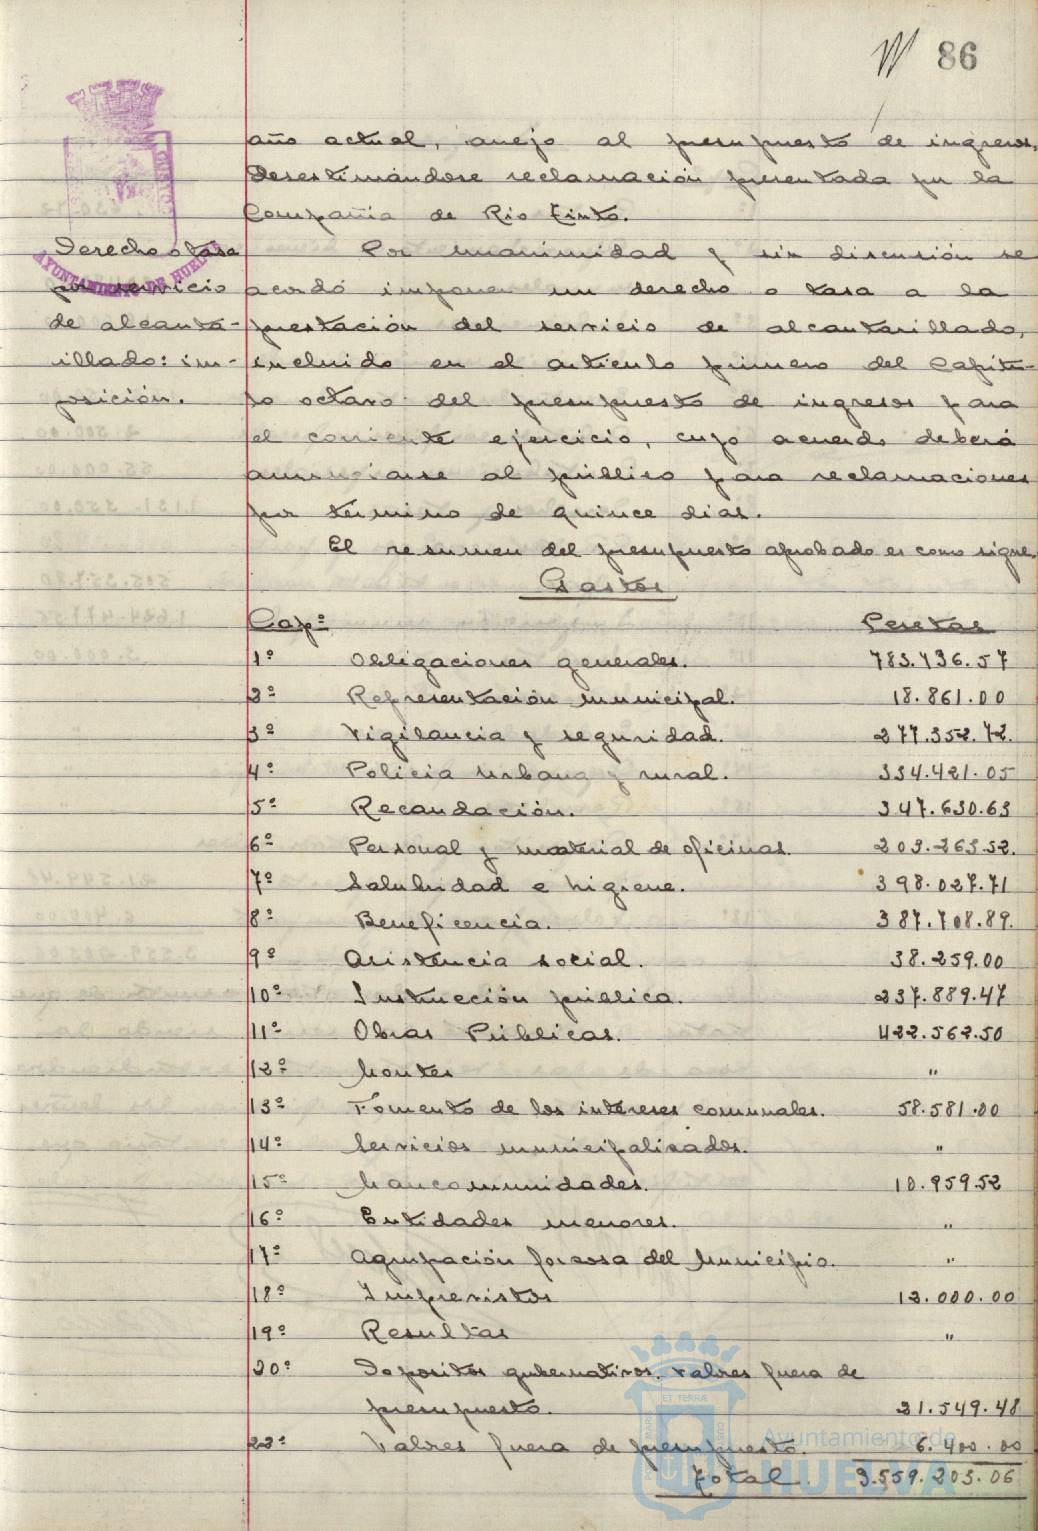 86
año actual, anejo al presupuesto de ingresos,
desestimándose reclamación presentada por la
Compañia de Rio Tinto.
Derecho o tasa
por servicio
de alcanta-
rillado: im-
posición.
Por unanimidad y sin discusión se
acordó imponer un derecho o tasa a la
prestación del servicio de alcantarillado,
incluido en el articulo primero del Capitu-
lo octavo del presupuesto de ingresos para
el corriente ejercicio, cuyo acuerdo deberá
anunciarse al público para reclamaciones
por término de quince dias.
El resumen del presupuesto aprobado es como sigue.
Gastos
Capº Pesetas
1º Obligaciones generales. 783.736.57
2º Representación municipal. 18.861.00
3º Vigilancia y seguridad. 277.352.72.
4º Policia urbana y rural. 334.421.05
5º Recaudación. 347.630.63
6º Personal y material de oficinas. 203.263.52.
7º Salubridad e higiene. 398.027.71
8º Beneficencia. 387.708.89.
9º Asistencia social. 38.259.00
10º Instrucción pública. 237.889.47
11º Obras Públicas. 422.562.50
12º Montes "
13º Fomento de los intereses comunales. 58.581.00
14º Servicios municipalizados. "
15º Mancomunidades. 10.959.52
16º Entidades menores. "
17º Agrupación forzosa del Municipio. "
18º Imprevistos 12.000.00
19º Resultas "
20º Depositos gubernativos. Valores fuera de
presupuesto. 21.549.48
22º Valores fuera de presupuesto. 6.400.00
Total 3.559.203.06
AYUNTAMIENTO DE HUELVA
Ayuntamiento de
HUELVA